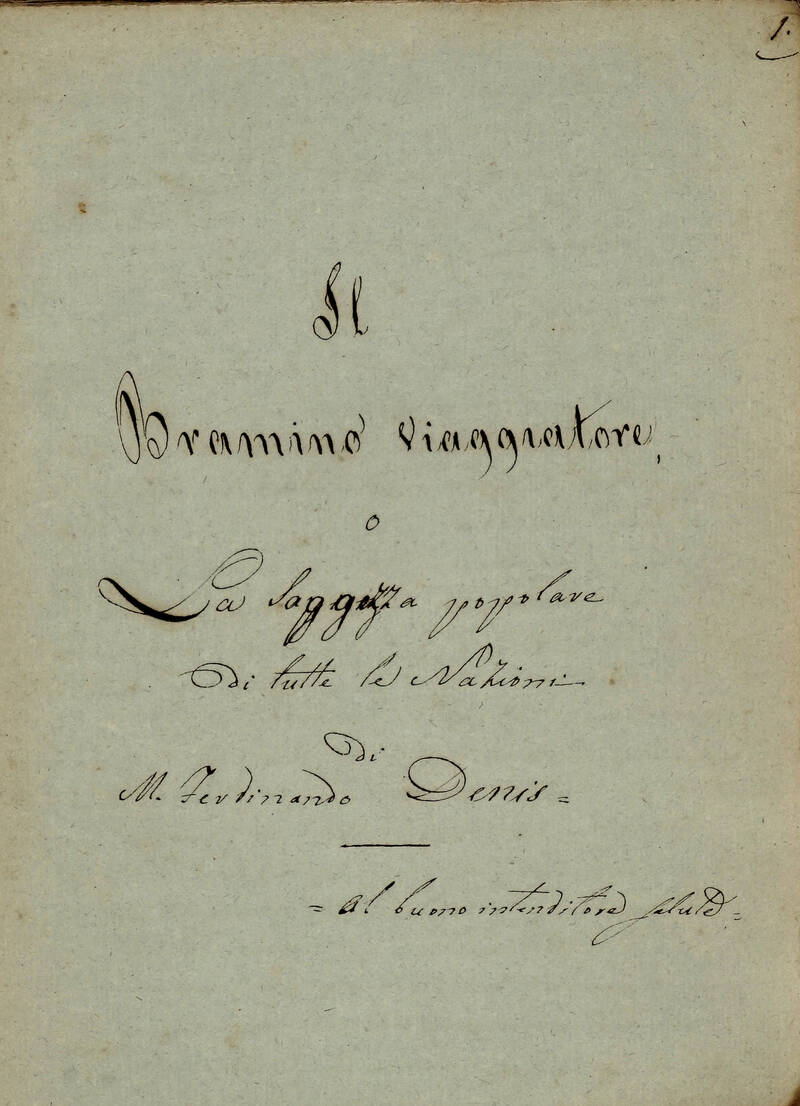 1.
Il
Bramino viaggiatore,
o
La saggezza popolare
Di tutte le Nazioni
Di
M. Ferdinando Denis =
= al buono intenditore salute =